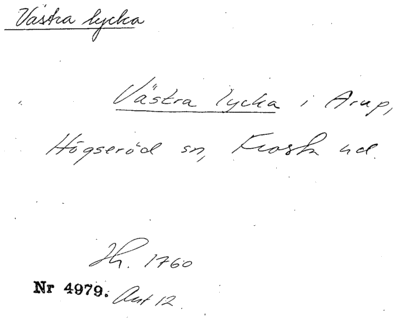 Västra lycka
Västra lycka i Arup,
Högseröd sn, Frosta hd.
Jh. 1760
Nr 4979. Akt 12.